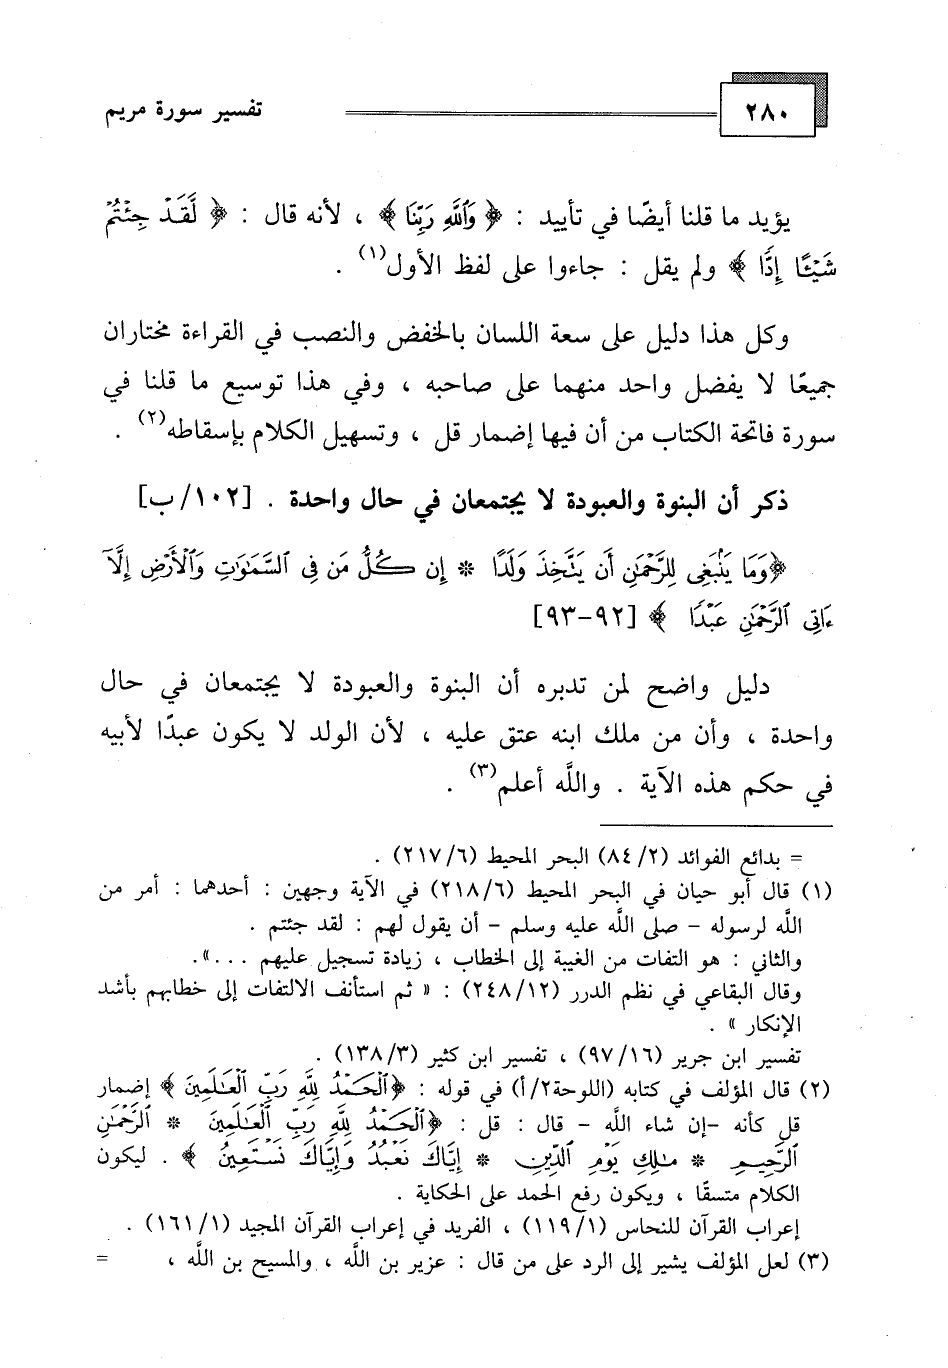 ٢٨٠ تفسير سورة مريم
يؤيد ما قلنا أيضًا في تأييد : ﴿ وَٱللَّهِ رَبِّنَا ﴾ ، لأنه قال : ﴿ لَّقَدْ جِئْتُمْ
شَيْـًٔا إِدًّا ﴾ ولم يقل : جاءوا على لفظ الأول(١) .
وكل هذا دليل على سعة اللسان بالخفض والنصب في القراءة مختاران
جميعًا لا يفضل واحد منهما على صاحبه ، وفي هذا توسيع ما قلنا في
سورة فاتحة الكتاب من أن فيها إضمار قل ، وتسهيل الكلام بإسقاطه(٢) .
ذكر أن البنوة والعبودة لا يجتمعان في حال واحدة . [١٠٢/ب]
﴿وَمَا يَنۢبَغِى لِلرَّحْمَٰنِ أَن يَتَّخِذَ وَلَدًا * إِن كُلُّ مَن فِى ٱلسَّمَٰوَٰتِ وَٱلْأَرْضِ إِلَّآ
ءَاتِى ٱلرَّحْمَٰنِ عَبْدًا ﴾ [٩٢-٩٣]
دليل واضح لمن تدبره أن البنوة والعبودة لا يجتمعان في حال
واحدة ، وأن من ملك ابنه عتق عليه ، لأن الولد لا يكون عبدًا لأبيه
في حكم هذه الآية . واللَّه أعلم(٣) .
= بدائع الفوائد (٨٤/٢) البحر المحيط (٢١٧/٦) .
(١) قال أبو حيان في البحر المحيط (٢١٨/٦) في الآية وجهين : أحدهما : أمر من
اللَّه لرسوله - صلى اللَّه عليه وسلم - أن يقول لهم : لقد جئتم .
والثاني : هو التفات من الغيبة إلى الخطاب ، زيادة تسجيل عليهم ...».
وقال البقاعي في نظم الدرر (٢٤٨/١٢) : « ثم استأنف الالتفات إلى خطابهم بأشد
الإنكار » .
تفسير ابن جرير (٩٧/١٦) ، تفسير ابن كثير (١٣٨/٣) .
(٢) قال المؤلف في كتابه (اللوحة٢/أ) في قوله : ﴿ٱلْحَمْدُ لِلَّهِ رَبِّ ٱلْعَٰلَمِينَ ﴾ إضمار
قل كأنه -إن شاء اللَّه - قال : قل : ﴿ٱلْحَمْدُ لِلَّهِ رَبِّ ٱلْعَٰلَمِينَ * ٱلرَّحْمَٰنِ
ٱلرَّحِيمِ * مَٰلِكِ يَوْمِ ٱلدِّينِ * إِيَّاكَ نَعْبُدُ وَإِيَّاكَ نَسْتَعِينُ ﴾ . ليكون
الكلام متسقًا ، ويكون رفع الحمد على الحكاية .
إعراب القرآن للنحاس (١١٩/١) ، الفريد في إعراب القرآن المجيد (١٦١/١) .
(٣) لعل المؤلف يشير إلى الرد على من قال : عزير بن اللَّه ، والمسيح بن اللَّه ، =